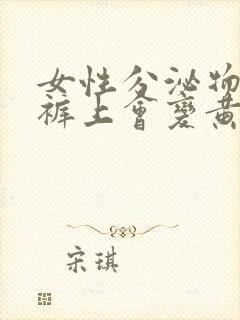 女性分泌物
裤上會變黄
宋琪